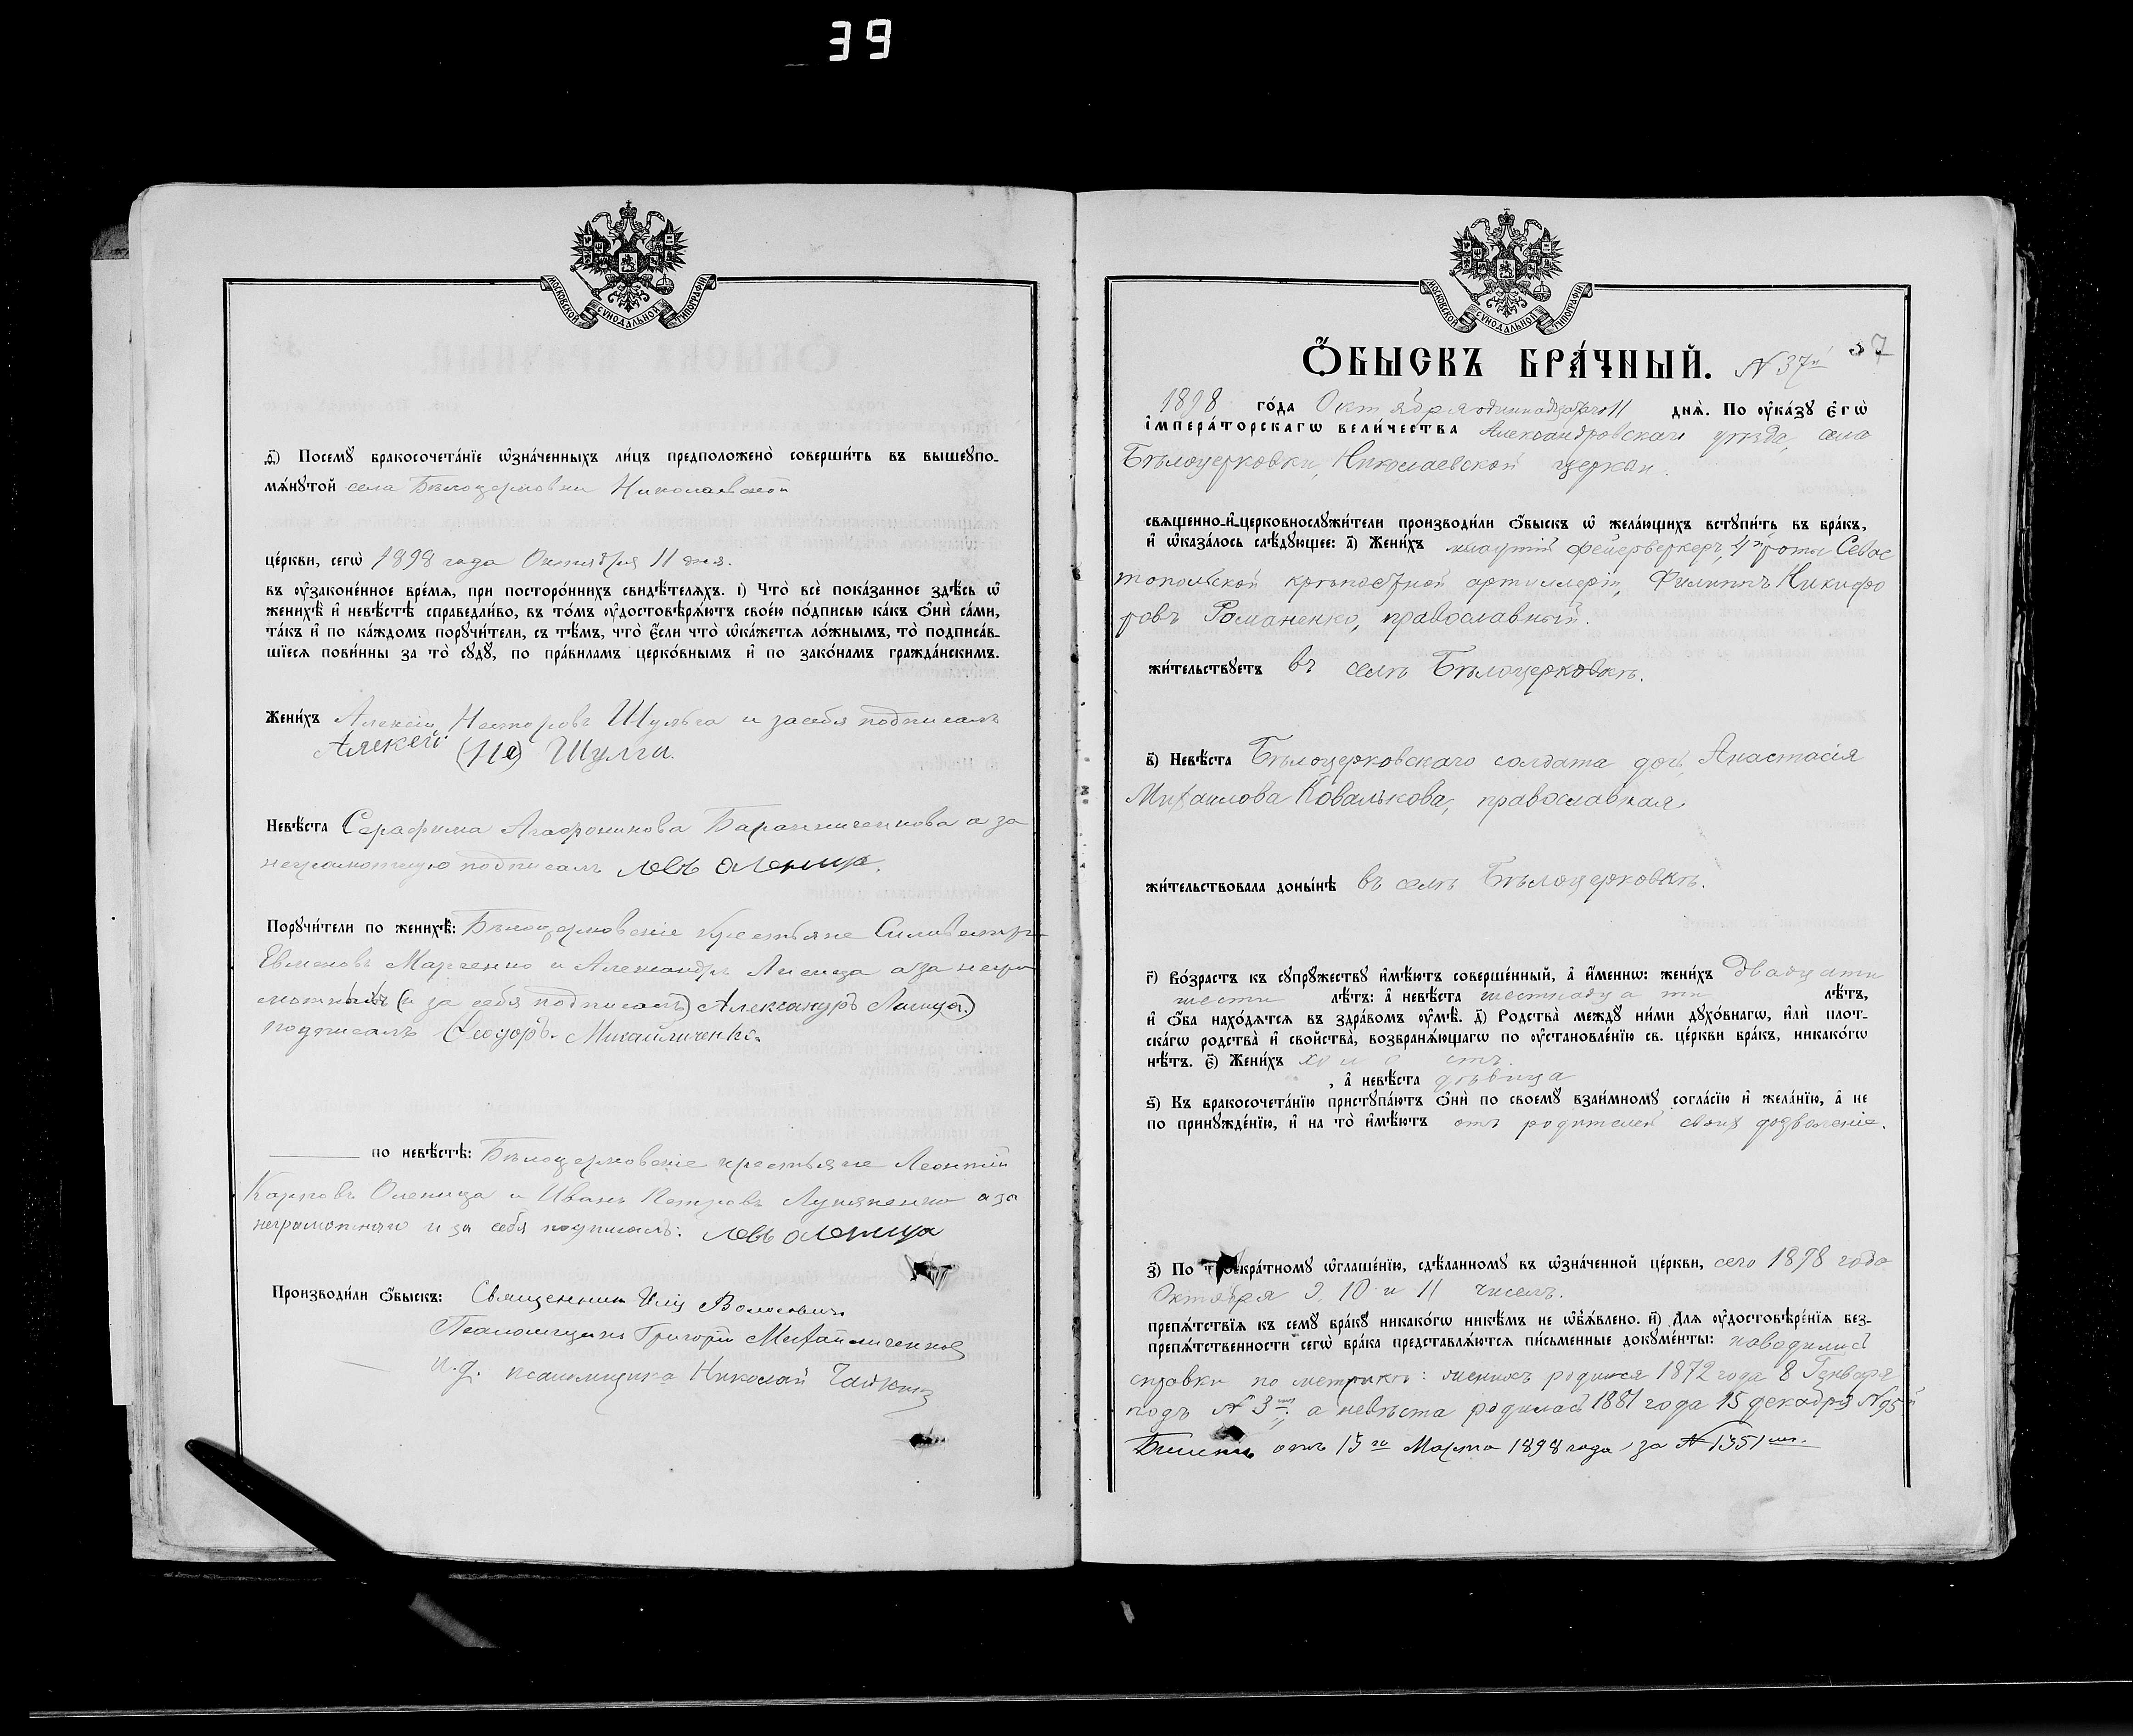 39
МОСКОВСКОЙ СѴНОДАЛЬНОЙ ТИПОГРАФІИ
ѳ҃) Посемꙋ̀ бракосочета́нїе ѡ҆зна́ченныхъ ли́цъ предположено̀ соверши́ть въ вышеупо-
мѧ́нꙋтой села Бѣлоцерковки Николаевской
це́ркви, сегѡ̀ 1898 года Октября 11 дня.
въ ᲂу҆зако́ненное вре́мѧ, при посторо́ннихъ свидѣ́телѧхъ. і҃) Что̀ всѐ пока́занное здѣ́сь ѡ҆
женихѣ̀ и҆ невѣ́стѣ справедли́во, въ то́мъ ᲂу҆достовѣрѧ́ютъ свое́ю по́дписью ка́къ ѻ҆нѝ са́ми,
та́къ и҆ по ка́ждомъ порꙋчи́тели, съ тѣ́мъ, что̀ є҆́сли что̀ ѡ҆ка́жетсѧ ло́жнымъ, то̀ подписа́в-
шїесѧ пови́нны за то̀ сꙋдꙋ̀, по пра́виламъ церко́внымъ и҆ по зако́намъ гражда́нскимъ.
Жени́хъ Алексѣй Несторовъ Шульга и засебя подписалъ
Алексей (Не) Шулга.
Невѣ́ста Серафима Агафоникова Баранниченкова а за
неграмотную подписалъ Левъ Оленица.
Порꙋчи́тели по женихѣ̀: Бѣлоцерковскіе крестьяне Силивестръ
Евменовъ Марченко и Александръ Лисица а за негра
мотныхъ (и за себя подписалъ) Александръ Лисица)
подписалъ Ѳеодоръ Михайличенко.
по невѣ́стѣ: Бѣлоцерковскіе крестьяне Леонтій
Карповъ Оленица и Иванъ Петровъ Лукяненко а за
неграмотнаго и за себя подписалъ: Левъ Оленица
Производи́ли ѻ҆́быскъ: Священникъ Илія Волосевичъ
Псаломщикъ Григорій Михайличенковъ
и. д. псаломщика Николай
МОСКОВСКОЙ СѴНОДАЛЬНОЙ ТИПОГРАФІИ
Ѻ҆́БЫСКЪ БРА́ЧНЫЙ. N 37й 37
1898 го́да Октября одиннадцатаго 11 днѧ̀. По ᲂу҆ка́зꙋ є҆гѡ̀
і҆мпера́торскагѡ вели́чества Александровскаго уѣзда, села
Бѣлоцерковки, Николаевской церкви.
свѧщенно-и҆-церковнослꙋжи́тели производи́ли ѻ҆́быскъ ѡ҆ жела́ющихъ встꙋпи́ть въ бра́къ,
и҆ ѡ҆каза́лось слѣ́дꙋющее: а҃) Жени́хъ младшій фейерверкеръ, 4й роты Севас
топольской крѣпостной артиллеріи, Филиппъ Никифо
ровъ Романенко, православный.
жи́тельствꙋетъ въ селѣ Бѣлоцерковкѣ.
в҃) Невѣ́ста Бѣлоцерковскаго солдата дочь, Анастасія
Михаилова Ковалькова, православная.
жи́тельствовала доны́нѣ въ селѣ Бѣлоцерковкѣ.
г҃) Во́зрастъ къ сꙋпрꙋ́жествꙋ и҆мѣ́ютъ соверше́нный, а҆ и҆́менно: жени́хъ двадцати
шести лѣ́тъ: а҆ невѣ́ста шестнадцати лѣ́тъ,
и҆ ѻ҆́ба нахо́дѧтсѧ въ здра́вомъ ᲂу҆мѣ̀. д҃) Родства̀ междꙋ̀ ни́ми дꙋхо́внагѡ, и҆лѝ плот-
ска́гѡ родства̀ и҆ сво́йства, возбранѧ́ющагѡ по ᲂу҆становле́нїю св. це́ркви бра́къ, никако́гѡ
нѣ́тъ. є҃) Жени́хъ холостъ
, а҆ невѣ́ста дѣвица
ѕ҃) Къ бракосочета́нїю пристꙋпа́ютъ ѻ҆нѝ по своемꙋ̀ взаи́мномꙋ согла́сїю и҆ жела́нїю, а҆ не
по принꙋжде́нїю, и҆ на то̀ и҆мѣ́ютъ отъ родителей своихъ дозволеніе.
з҃) По троекра́тномꙋ ѡ҆глаше́нїю, сдѣ́ланномꙋ въ ѡ҆зна́ченной це́ркви, сего 1898 года
Октября 9, 10 и 11 чиселъ.
препѧ́тствїѧ къ семꙋ̀ бра́кꙋ никако́гѡ никѣ́мъ не ѡ҆б̾ѧ́влено. и҃) Длѧ ᲂу҆достовѣре́нїѧ без-
препѧ́тственности сегѡ̀ бра́ка представлѧ́ютсѧ пи́сьменные докꙋме́нты: наводились
справки по метрикѣ: женихъ родился 1872 года 8 Генваря
подъ N 3мъ; а невѣста родилась 1881 года 15 декабря N 95й
Билетъ отъ 15го Марта 1898 года за N 1351мъ.